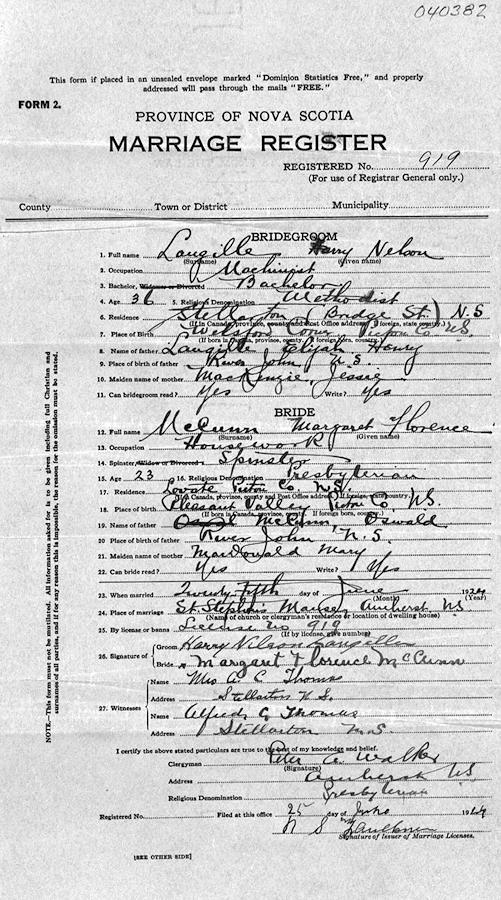 040382
This form if placed in an unsealed envelope marked "Dominion Statistics Free," and properly
addressed will pass through the mails "FREE."
FORM 2.
PROVINCE OF NOVA SCOTIA
MARRIAGE REGISTER
REGISTERED No. 919
(For use of Registrar General only.)
County Town or District Municipality
BRIDEGROOM
1. Full name Langille Harry Nelson
(Surname) (Given name)
2. Occupation Machinist
3. Bachelor, Widower or Divorced Bachelor
4. Age 36 5. Religious Denomination Methodist
6. Residence Stellarton (Bridge St.) N.S
(If in Canada, province, county and Post Office address. If foreign, state country.)
7. Place of Birth Welsford Pictou Co. N.S.
(If born in Canada, province, county. If foreign born, country.)
8. Name of father Langille Elijah Henry
9. Place of birth of father River John N.S.
10. Maiden name of mother MacKenzie, Jessie
11. Can bridegroom read? Yes Write? Yes
BRIDE
12. Full name McCunn Margaret Florence
(Surname) (Given name)
13. Occupation Housework
14. Spinster, Widow or Divorced Spinster
15. Age 23 16. Religious Denomination Presbyterian
17. Residence Lovate Pictou Co. N.S.
(If in Canada, province, county and Post Office address. If foreign, state country.)
18. Place of birth Pleasant Valley Pictou Co, N.S.
(If born in Canada, province, county. If foreign born, country.)
19. Name of father McCunn, Oswald
20 Place of birth of father River John, N.S.
21. Maiden name of mother MacDonald Mary
22. Can bride read? Yes Write? Yes
23. When married Twenty-fifth day of June 1924
(Month) (Year)
24. Place of marriage St. Stephens Manse, Amherst, N.S.
(Name of church or clergyman's residence or location of dwelling house)
25. By license or banns License no 919
(If by license, give number)
26. Signature of Groom Harry Nelson Langille
Bride Margaret Florence McCunn
27. Witnesses
Name Mrs A C Thomas
Address Stellarton N.S.
Name Alfred G Thomas
Address Stellarton N.S.
I certify the above stated particulars are true to the best of my knowledge and belief.
Clergyman Peter A. Walker
(Signature)
Address Amherst NS
Religious Denomination Presbyterian
Registered No. Filed at this office 25 day of June 1924
N S Faulkner
Signature of Issuer of Marriage Licenses.
[SEE OTHER SIDE]
NOTE.—This form must not be mutilated. All information asked for is to be given including full Christian and
surnames of all parties, and if for any reason this is impossible, the reason for the omission must be stated.